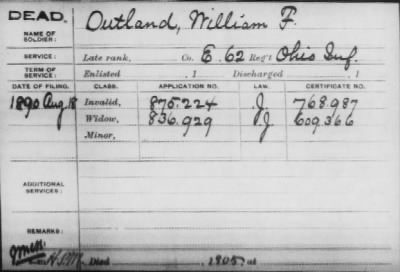 DEAD.
NAME OF SOLDIER: Outland, William F.
SERVICE: Late rank, Co. E. 62 Reg't Ohio Inf.
TERM OF SERVICE: Enlisted , 1 Discharged , 1
DATE OF FILING. CLASS. APPLICATION NO. LAW. CERTIFICATE NO.
1890 Aug 18 Invalid, 875.224 J. 768.987
Widow, 836.929 J 609.366
Minor,
ADDITIONAL SERVICES:
REMARKS:
Died 1905, at